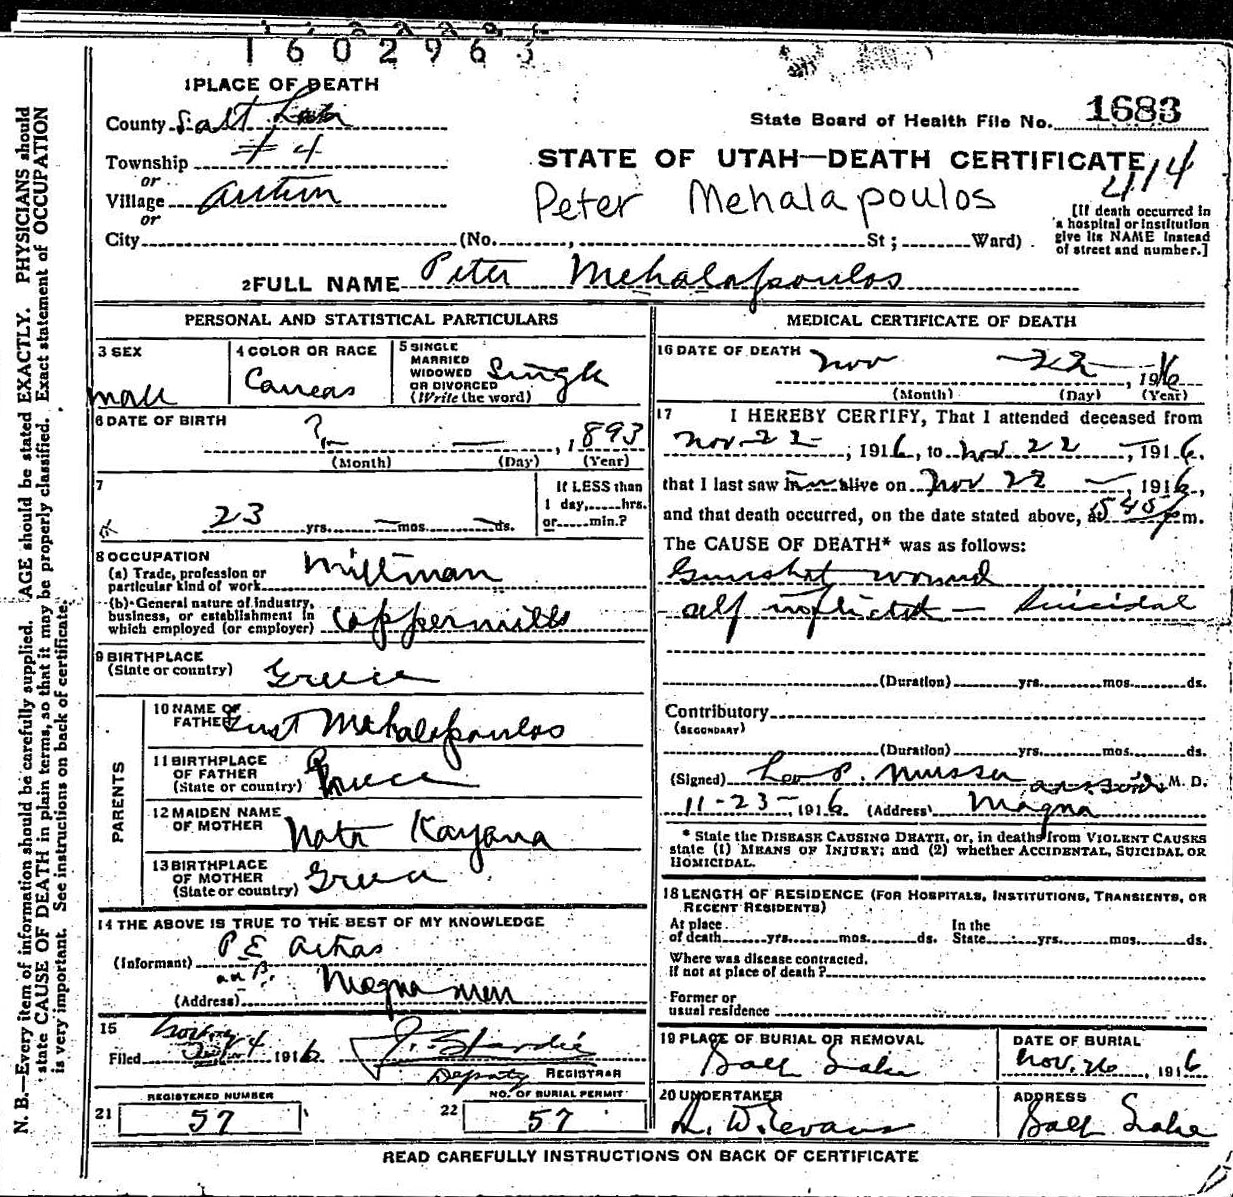 1602963
1 PLACE OF DEATH
County Salt Lake
State Board of Health File No. 1683
Township # 4
or
STATE OF UTAH—DEATH CERTIFICATE
4114
Village
or
Peter Mehalapoulos
[If death occurred in a hospital or institution give its NAME instead of street and number.]
City (No. , St; Ward)
2 FULL NAME Peter Mehalapoulos
PERSONAL AND STATISTICAL PARTICULARS
3 SEX
male
4 COLOR OR RACE
5 SINGLE MARRIED WIDOWED OR DIVORCED (Write the word)
Single
6 DATE OF BIRTH
? — — , 1893
(Month) (Day) (Year)
7
23 yrs. — mos. — ds.
If LESS than 1 day, hrs. or min.?
8 OCCUPATION
(a) Trade, profession or particular kind of work Millman
(b) General nature of industry, business, or establishment in which employed (or employer) Coppermills
9 BIRTHPLACE
(State or country) Greece
PARENTS
10 NAME OF FATHER Gust Mehalapoulos
11 BIRTHPLACE OF FATHER (State or country) Greece
12 MAIDEN NAME OF MOTHER Kayana
13 BIRTHPLACE OF MOTHER (State or country) Greece
14 THE ABOVE IS TRUE TO THE BEST OF MY KNOWLEDGE
(Informant) P E
(Address) Magna
15
Filed 1916
Deputy REGISTRAR
REGISTERED NUMBER
21 57
NO. OF BURIAL PERMIT
22 57
MEDICAL CERTIFICATE OF DEATH
16 DATE OF DEATH Nov — 22 — , 1916
(Month) (Day) (Year)
17 I HEREBY CERTIFY, That I attended deceased from
Nov 22 — , 1916, to Nov 22 — , 1916,
that I last saw him alive on Nov 22 — , 1916,
and that death occurred, on the date stated above, at 545 p m.
The CAUSE OF DEATH* was as follows:
Gunshot wound
self inflicted — Suicidal
(Duration) yrs. mos. ds.
Contributory
(SECONDARY)
(Duration) yrs. mos. ds.
(Signed) Leo P. M. D.
11-23-, 1916 (Address) Magna
* State the DISEASE CAUSING DEATH, or, in deaths from VIOLENT CAUSES state (1) MEANS OF INJURY; and (2) whether ACCIDENTAL, SUICIDAL OR HOMICIDAL.
18 LENGTH OF RESIDENCE (FOR HOSPITALS, INSTITUTIONS, TRANSIENTS, OR RECENT RESIDENTS)
At place of death yrs. mos. ds. In the State yrs. mos. ds.
Where was disease contracted, if not at place of death?
Former or usual residence
19 PLACE OF BURIAL OR REMOVAL
Salt Lake
DATE OF BURIAL
Nov. 26, 1916
20 UNDERTAKER
W. Evans
ADDRESS
Salt Lake
READ CAREFULLY INSTRUCTIONS ON BACK OF CERTIFICATE
N. B.—Every item of information should be carefully supplied. AGE should be stated EXACTLY. PHYSICIANS should
state CAUSE OF DEATH in plain terms, so that it may be properly classified. Exact statement of OCCUPATION
is very important. See instructions on back of certificate.